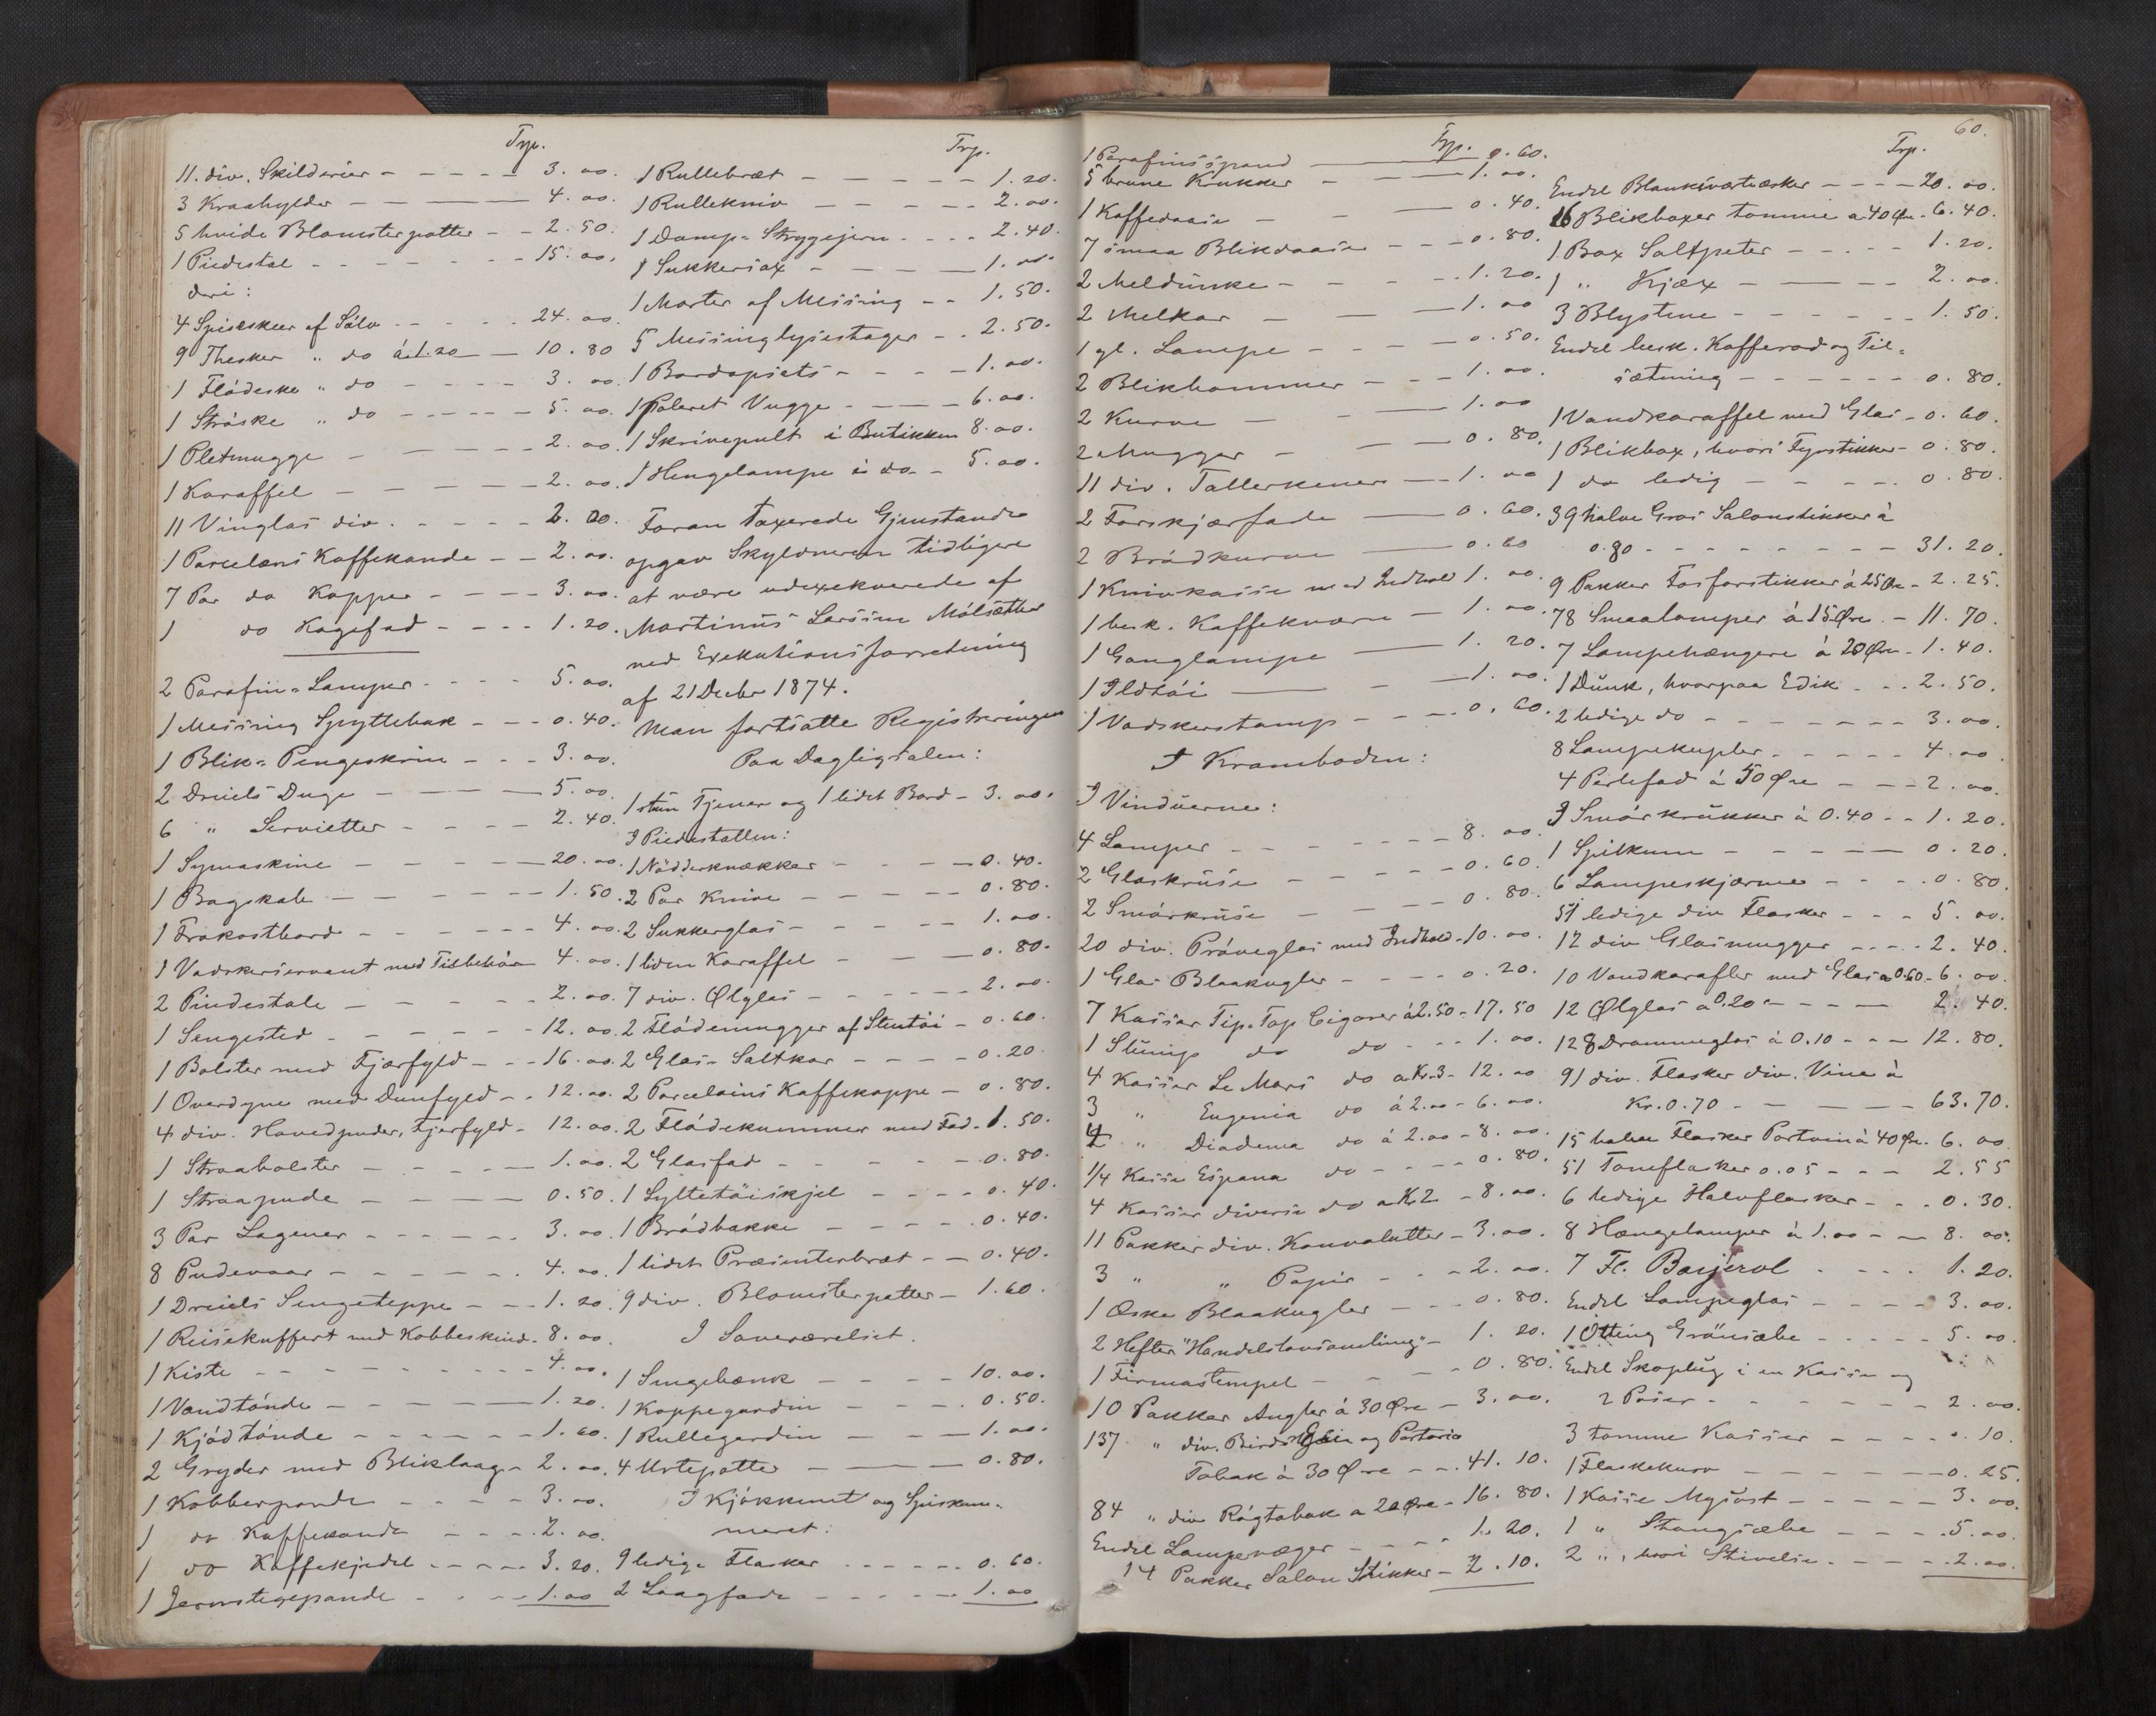 Trp.
11. div. Skilderier - - - - - 3. 00.
3 Kraahylder - - - 4. 00.
5 hvide Blomsterpotter - - 2. 50.
1 Piedestal - - - - - - 15. 00.
deri:
4 Spiseskeer af Sölv - - - - 24. 00.
9 Theskeer " do á 1.20 - 10. 80
1 Flödeske " do - - - - 3. 00.
1 Ströske " do - - - - 5. 00.
1 Pletmugge - - - - - 2. 00.
1 Karaffel - - - - - 2. 00.
11 Vinglas div. - - - - 2. 00.
1 Porcelæns Kaffekande - - 2. 00.
7 Par do Kopper - - - - 3. 00.
1 do Kagefad - - - - 1. 20.
2 Parafin-Lamper - - - - 5. 00.
1 Messing Spyttebak - - - 0. 40.
1 Blik-Pengeskrin - - - 3. 00.
2 Dreiels Duge - - - - 5. 00.
6 " Servietter - - - - 2. 40.
1 Symaskine - - - - - 20. 00.
1 Bogskab - - - - - 1. 50.
1 Frokostbord - - - - - 4. 00.
1 Vadskeservant med Tilbehör 4. 00.
2 Piedestale - - - - - 2. 00.
1 Sengested - - - - - 12. 00.
1 Bolster med Fjærfyld - - 16. 00.
1 Overdyne med Dunfyld - - 12. 00.
4 div. Hovedpuder, Fjerfyld - 12. 00.
1 Straabolster - - - - - 1. 00.
1 Straapude - - - - 0. 50.
3 Par Lagener - - - - - 3. 00.
8 Pudevaar - - - - - 4. 00.
1 Dreiels Sengeteppe - - - 1. 20.
1 Reisekuffert med Kobbeskind - 8. 00.
1 Kiste - - - - - - - 4. 00.
1 Vandtönde - - - - - 1. 20.
1 Kjödtönde - - - - - - 1. 60.
2 Gryder med Bliklaag - 2. 00.
1 Kobberpande - - - - 3. 00.
1 do Kaffekande - - - 2. 00.
1 do Kaffekjedel - - - - 3. 20.
1 Jernstegepande - - - - 1. 00
Trp.
1 Rullebræt - - - - - 1. 20.
1 Rullekniv - - - - - 2. 00.
1 Damp-Strygejern - - - - 2. 40.
1 Sukkersax - - - - 1. 00.
1 Morter af Messing - - 1. 50.
5 Messinglysestager - - 2. 50.
1 Bordopsats - - - - 1. 00.
1 Poleret Vugge - - - 6. 00.
1 Skrivepult i Butikken 8. 00.
1 Hengelampe i do - 5. 00.
Foran taxerede Gjenstande
opgav Skyldneren tidligere
at være udexekverede af
Martinus Larssen Mölsæther
ved Exekutionsforretning
af 21 Decbr 1874.
Man fortsatte Registreringen
Paa Dagligsalen:
1 stum Tjener og 1 lidet Bord - 3. 00.
I Piedestallen:
1 Nöddeknækker - - - 0. 40.
2 Par Knive - - - - 0. 80.
2 Sukkerglas - - - - - 1. 00.
1 liden Karaffel - - - 0. 80.
7 div. Ølglas - - - - - 2. 00.
2 Flödemugger af Stentöi - 0. 60.
2 Glas-Saltkar - - - - 0. 20.
2 Porcelains Kaffekoppe - 0. 80.
2 Flödekummer med Fad - 1. 50.
2 Glasfad - - - - - 0. 80.
1 Syltetöiskjel - - - - 0. 40.
1 Brödbakke - - - - - 0. 40.
1 lidet Præsenterbræt - - 0. 40.
9 div. Blomsterpotter - 1. 60.
I Soveværelset.
1 Sengebænk - - - - 10. 00.
1 Kappegardin - - - - 0. 50.
1 Rullegardin - - - 1. 00.
4 Urtepotter - - - 0. 80.
I Kjökkenet og Spiskam-
meret:
9 ledige Flasker - - - - - 0. 60.
2 Laagfade - - - - - 1. 00
60.
Trp.
1 Parafinsspand - 0. 60.
5 brune Krukker - - 1. 00.
1 Kaffedaase - - - 0. 40.
7 smaa Blikdaaser - - - 0. 80.
2 Meldunke - - - - 1. 20.
2 Melkar - - - 1. 00
1 gl. Lampe - - - - 0. 50.
2 Blikkommer - - - 1. 00.
2 Kurve - - - 1. 00
2 Mugger - - - 0. 80.
11 div. Tallerkener - 1. 00
2 Forskjærfade - 0. 60.
2 Brödkurve - 0. 60
1 Knivkasse med Indhold 1. 00.
1 besk. Kaffekværn - 1. 00.
1 Ganglampe - 1. 20.
1 Ildtöi - - 1. 00.
1 Vadskerstamp - - - 0. 60.
I Kramboden:
I Vinduerne:
4 Lamper - - - - - - 8. 00.
2 Glaskruse - - - - - 0. 60.
2 Smörkruse - - - - 0. 80.
20 div. Pröveglas med Indhold - 10. 00.
1 Glas Blaakugler - - - 0. 20.
7 Kasser Tip-Top Cigarer á 2.50 - 17. 50
1 Slump do do - - - 1. 00.
4 Kasser Le Mars do a Kr. 3 - 12. 00
3 " Eugenia do á 2.00 - 6. 00.
4 " Diadema do á 2.00 - 8. 00.
1/4 Kasse Espana do - - - - 0. 80.
4 Kasser diverse do a Kr 2 - 8. 00.
11 Pakker div. Konvolutter - 3. 00.
3 " " Papir - - - 2. 00.
1 Æske Blaakugler - - - 0. 80.
2 Hefter "Handelslovsamling" - 1. 20.
1 Firmastempel - - - - 0. 80.
10 Pakker Angler á 30 Øre - 3. 00.
137 " div. Birds Eie og Portorico
Tobak á 30 Øre - - 41. 10.
84 " div Rögtobak a 20 Øre - 16. 80.
Endel Lampevæger - - - - 1. 20.
14 Pakker Salon Stikker - 2. 10.
Trp.
Endel Blanksværtæsker - - - - 20. 00.
16 Blikboxer tomme a 40 Øre - 6. 40.
1 Box Saltpeter - - - - 1. 20.
1 " Kjæx - - - - 2. 00.
3 Blystene - - - - - - 1. 50.
Endel besk. Kafferod og Til-
sætning - - - - - - 0. 80.
1 Vandkaraffel med Glas - 0. 60.
1 Blikbox, hvori Fyrstikker - 0. 80.
1 do ledig - - - - - 0. 80.
39 halve Gros Salonstikker á
0.80 - - - - - - - - 31. 20.
9 Pakker Fosforstikker á 25 Øre - 2. 25.
78 Smaalamper á 15 Øre - 11. 70.
7 Lampehængere á 20 Øre - 1. 40.
1 Dunk, hvorpaa Edik - - - 2. 50.
2 ledige do - - - - - - - 3. 00.
8 Lampekupler - - - - - 4. 00.
4 Perlefad á 50 Øre - - - 2. 00.
3 Smörkrukker á 0.40 - - 1. 20.
1 Spilkum - - - - - 0. 20.
6 Lampeskjærme - - - - 0. 80.
51 ledige div Flasker - - - 5. 00.
12 div Glasmugger - - - - 2. 40.
10 Vandkarafler med Glas a 0.60 - 6. 00.
12 Ølglas a 0.20 - - - - 2. 40.
128 Dramneglas á 0.10 - - - 12. 80.
91 div. Flasker div. Vine á
Kr. 0.70 - - - - - 63. 70.
15 halve Flasker Portvin á 40 Øre - 6. 00
51 Tomflasker 0.05 - - - 2. 55
6 ledige Halvflasker - - - 0. 30.
8 Hængelamper á 1.00 - - 8. 00.
7 Fl. Baijerøl - - - - 1. 20.
Endel Lampeglas - - - - 3. 00.
1 Otting Grönsæbe - - - - - 5. 00.
Endel Skoplug i en Kasse og
2 Poser - - - - - - - 2. 00.
3 tomme Kasser - - - - - 0. 10.
1 Flaskekurv - - - - - - 0. 25.
1 Kasse Mysost - - - - - 3. 00.
1 " Stangsæbe - - - - 5. 00.
2 ", hvori Stivelse - - - - 2. 00.